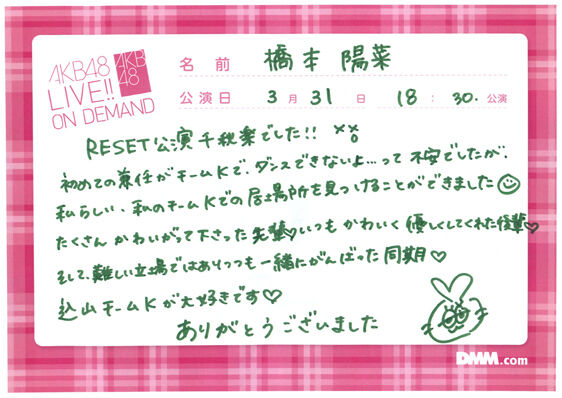 AKB48
LIVE!!
ON DEMAND
AKB
48
名前 橋本 陽菜
公演日 3月31日 18:30公演
RESET公演千秋楽でした!!
初めての兼任がチームKで、ダンスできないよ…って不安でしたが、
私らしい、私のチームKでの居場所を見つけることができました
たくさんかわいがって下さった先輩♡いつもかわいく優しくしてくれた後輩♡
そして、難しい立場ではありつつも一緒にがんばった同期♡
込山チームKが大好きです♡
ありがとうございました
DMM.com